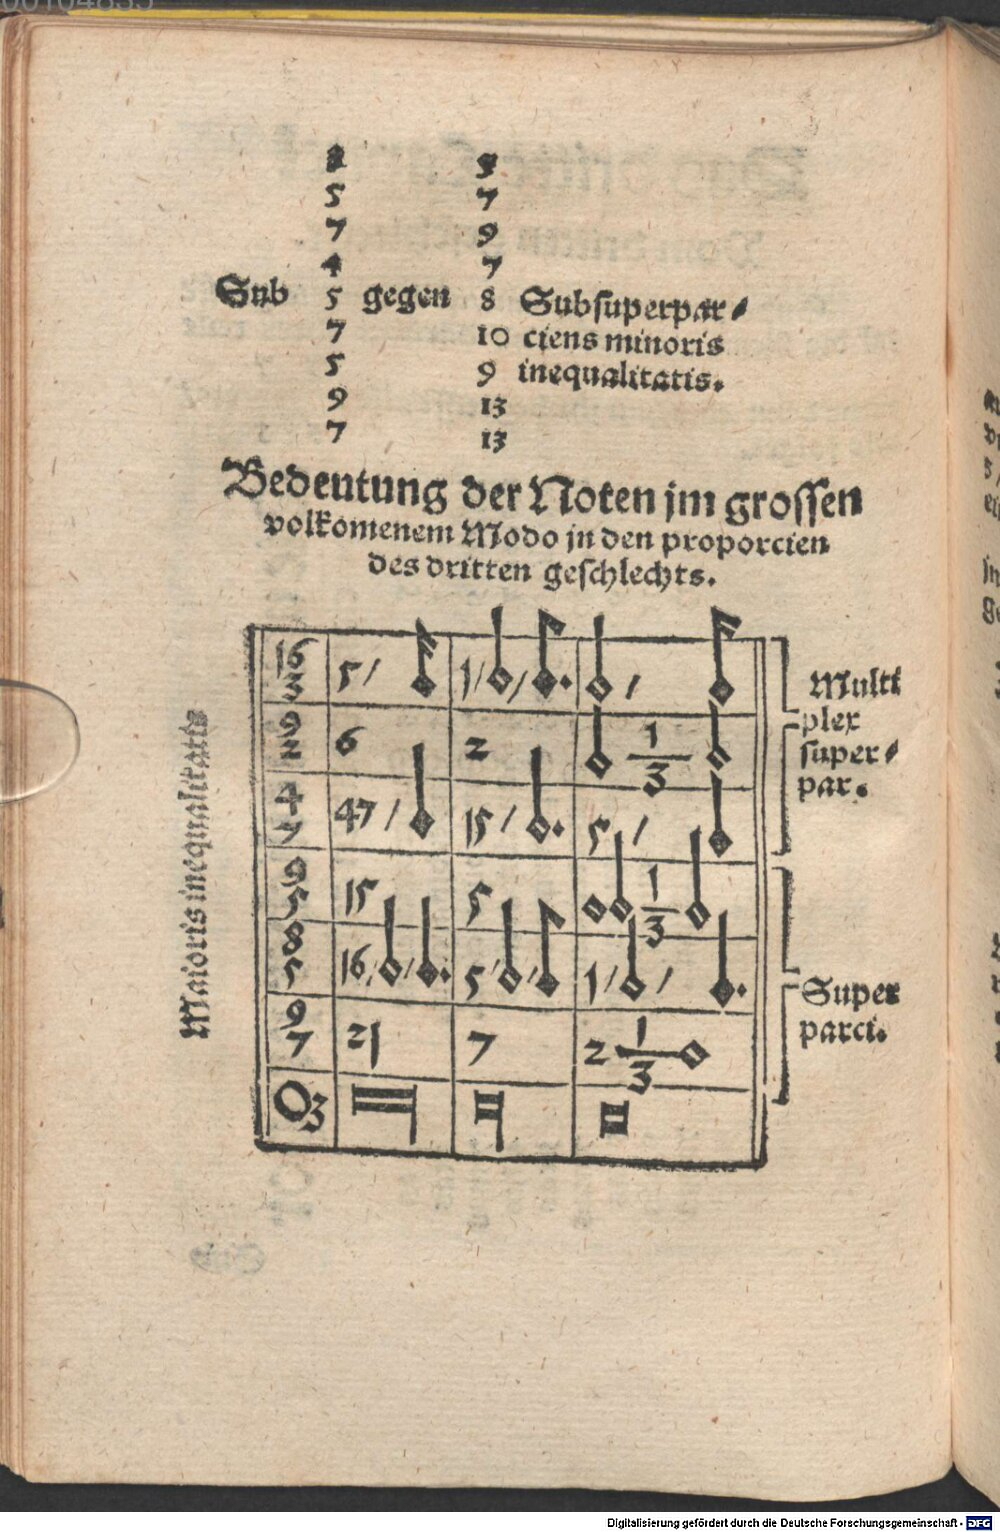 00104835
5
5 7
7 9
4 7
Sub 5 gegen 8 Subsuperpar⸗
7 10 ciens minoris
5 9 inequalitatis.
9 13
7 13
Bedeutung der Noten jm grossen
volkomenem Modo jn den proporcien
des dritten geschlechts.
16 3 5/ 1/ / . /
9 2 6 2 1 3
4 7 47/ 15/ . 5/
9 5 15 5 1 3
8 5 16/ / . 5/ / 1/ / .
9 7 21 7 2 1 3
O3
Maioris inequalitatis
Multi
plex
super⸗
par.
Super
parci.
Digitalisierung gefördert durch die Deutsche Forschungsgemeinschaft - DFG